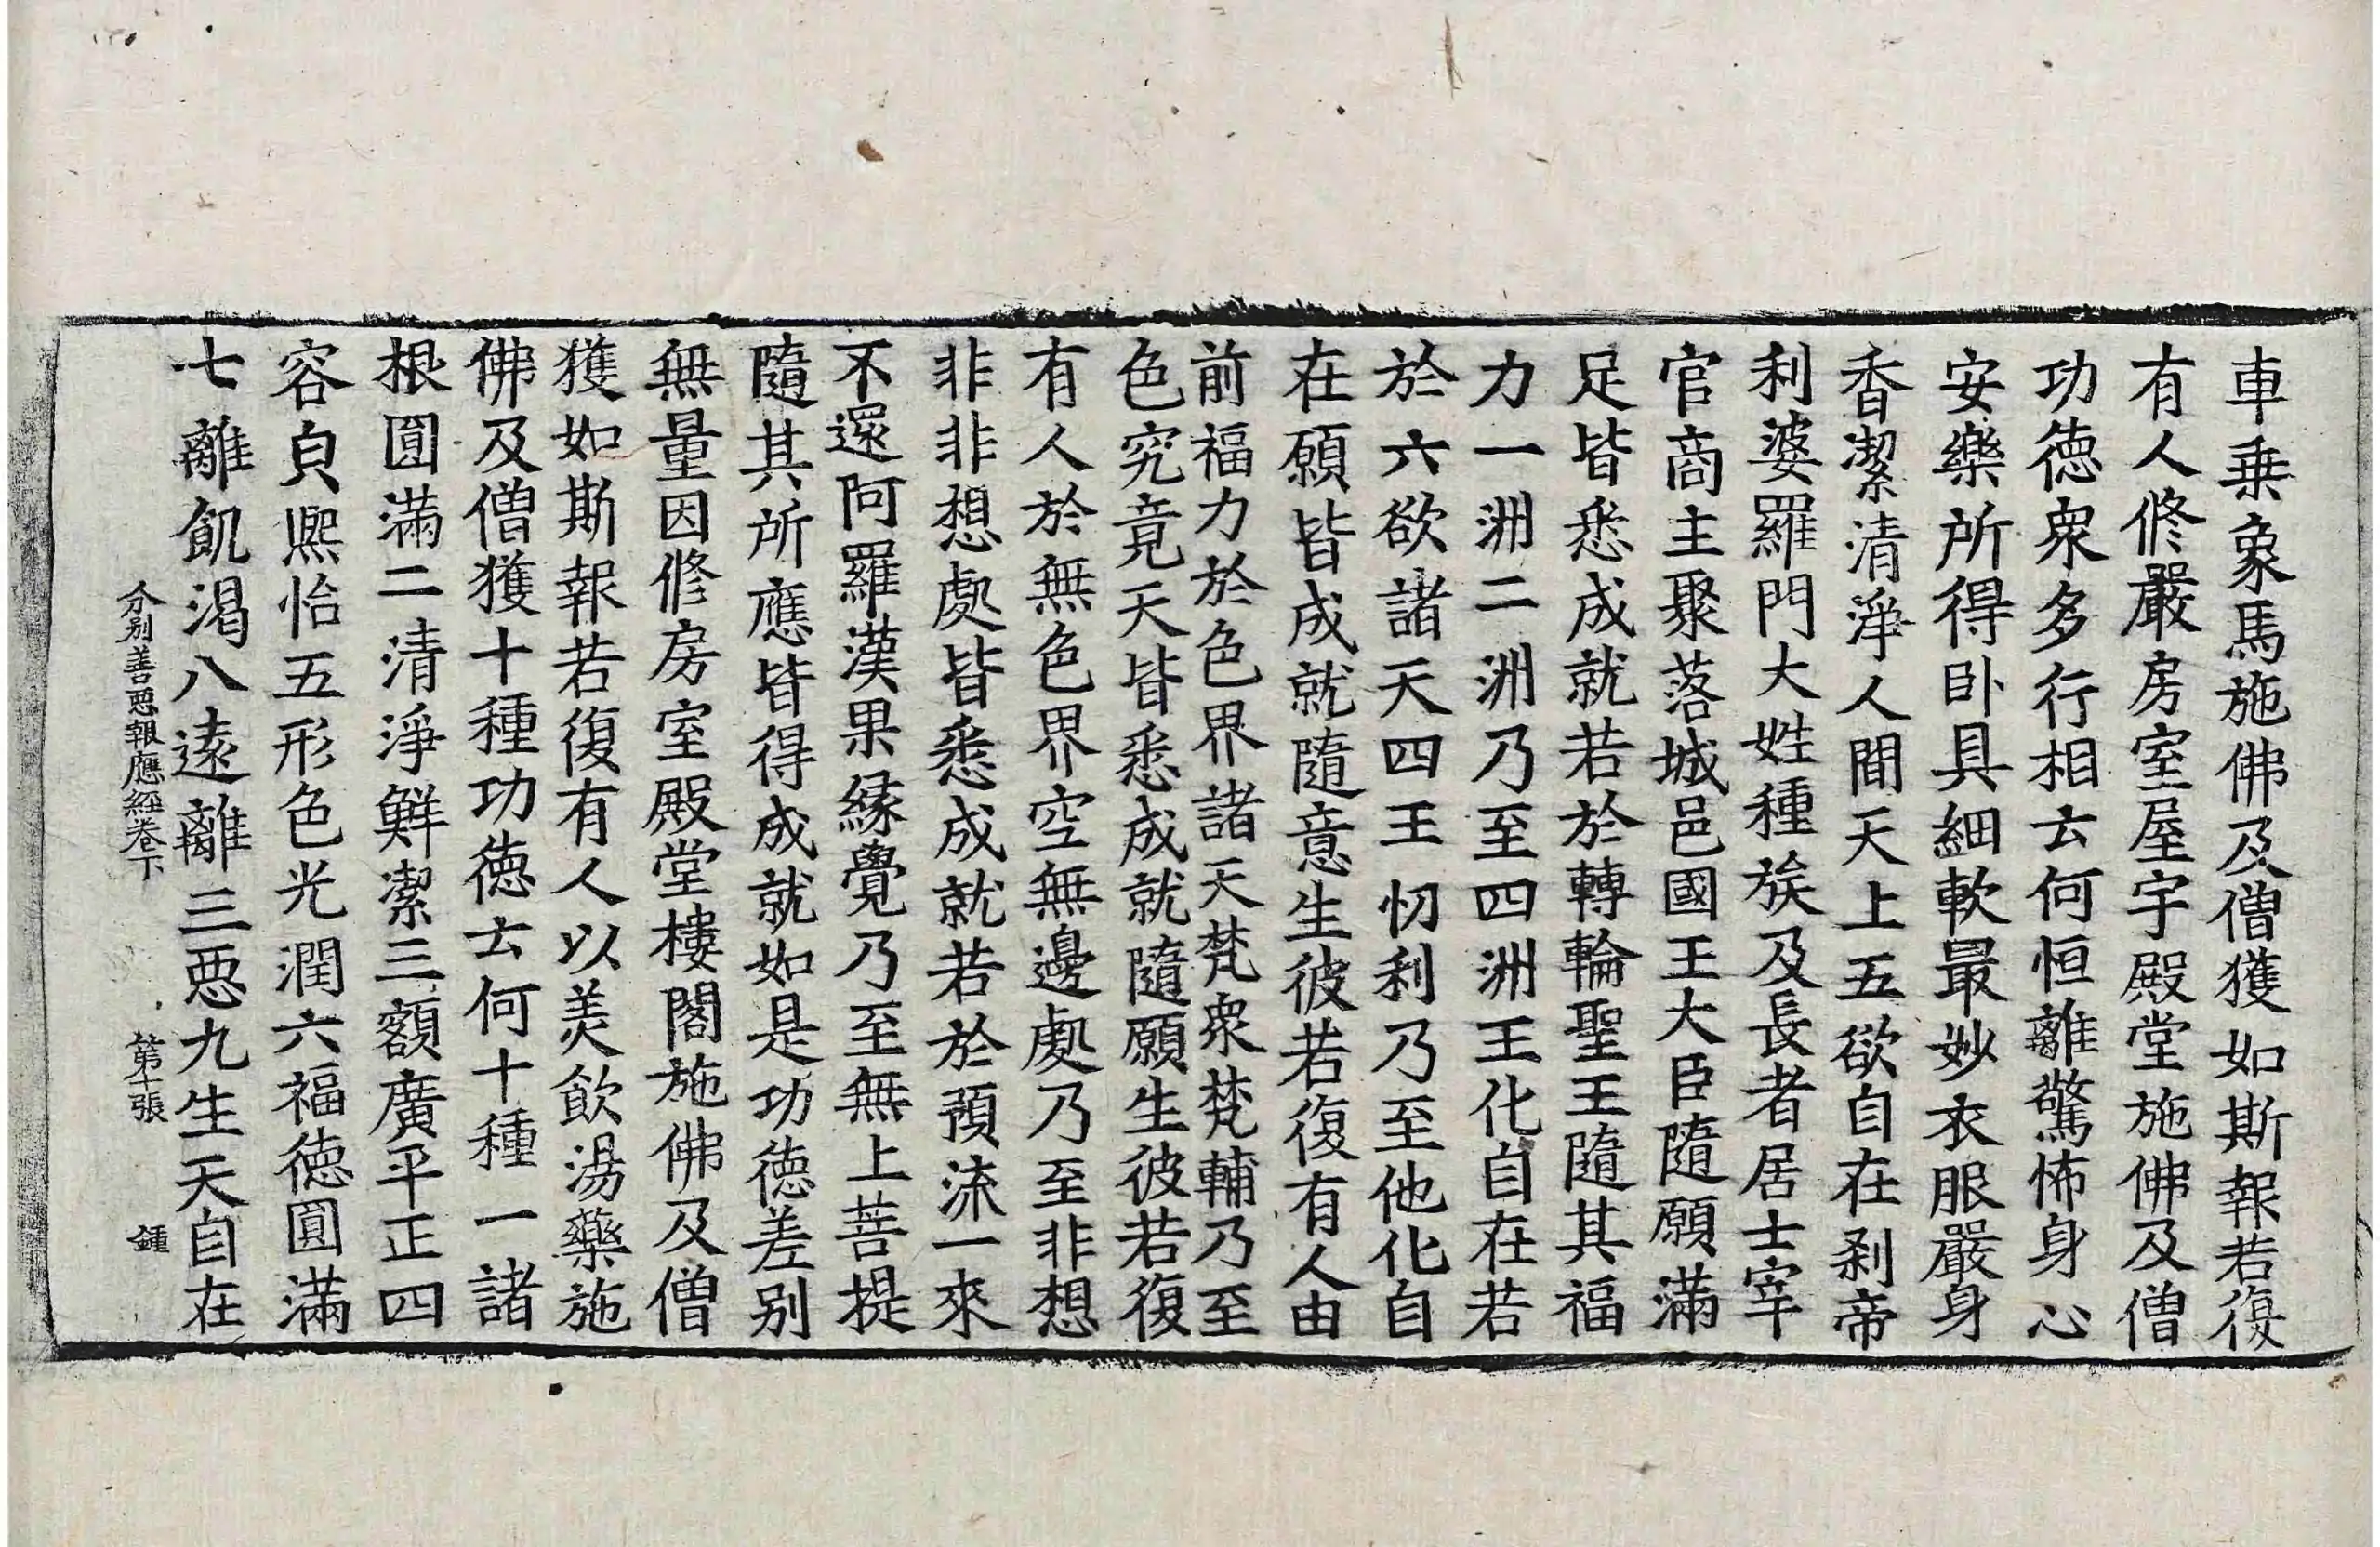 車乗象馬施佛及僧獲如斯報若復
有人修嚴房室屋宇殿堂施佛及僧
功德衆多行相云何恒離驚怖身心
安樂所得卧具細軟最妙衣服嚴身
香潔清淨人間天上五欲自在剎帝
利婆羅門大姓種族及長者居士宰
官商主聚落城邑國王大臣隨願滿
足皆悉成就若於轉輪聖王隨其福
力一洲二洲乃至四洲王化自在若
於六欲諸天四王忉利乃至他化自
在願皆成就隨意生彼若復有人由
前福力於色界諸天梵衆梵輔乃至
色究竟天皆悉成就隨願生彼若復
有人於無色界空無邊處乃至非想
非非想處皆悉成就若於預流一來
不還阿羅漢果緣覺乃至無上菩提
隨其所應皆得成就如是功德差別
無量因修房室殿堂樓閣施佛及僧
獲如斯報若復有人以羙飲湯藥施
佛及僧獲十種功德云何十種一諸
根圓滿二清淨鮮潔三額廣平正四
容皃熙怡五形色光潤六福德圓滿
七離飢渴八遠離三惡九生天自在
分別善惡報應經卷下 第十張 鍾